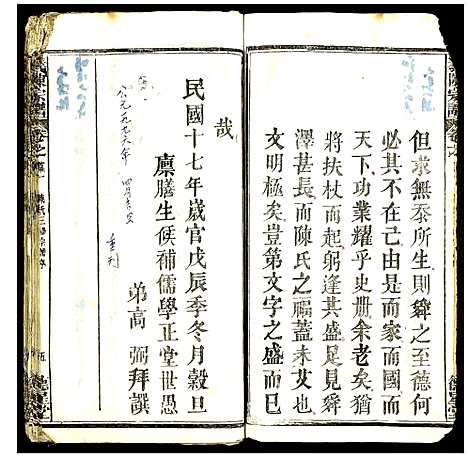 但求無忝所生則舜之至德何
必其不在己由是而家而國而
天下功業耀乎史册余老矣猶
將扶杖而起躬逢其盛足見舜
澤甚長而陳氏之福蓋未艾也
文明極矣豈第文字之感而已
哉
民國十七年歲官戊辰季冬月穀旦
廩膳生候補儒學正堂世愚
弟高弼拜譔
公元一九九六年
重刊